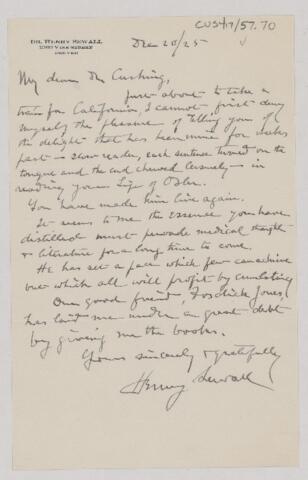 CUS/17/57.70
DR. HENRY SEWALL
DENVER
Dec 20/25
My dear Dr Cushing,
Just about to take a
train for California, I cannot first deny
myself the pleasure of telling you of
the delight that has been mine for weeks
past — slow reader, each sentence turned on the
tongue and the cud chewed leisurely — in
reading your Life of Osler.
You have made him live again.
It seems to me the essence you have
distilled must pervade medical thought
& literature for a long time to come.
He has set a pace which few can achieve
but which all will profit by emulating
Our good friend, Fosdick Jones,
has laid me under a great debt
by giving me the books.
Yours sincerely & gratefully
Henry Sewall